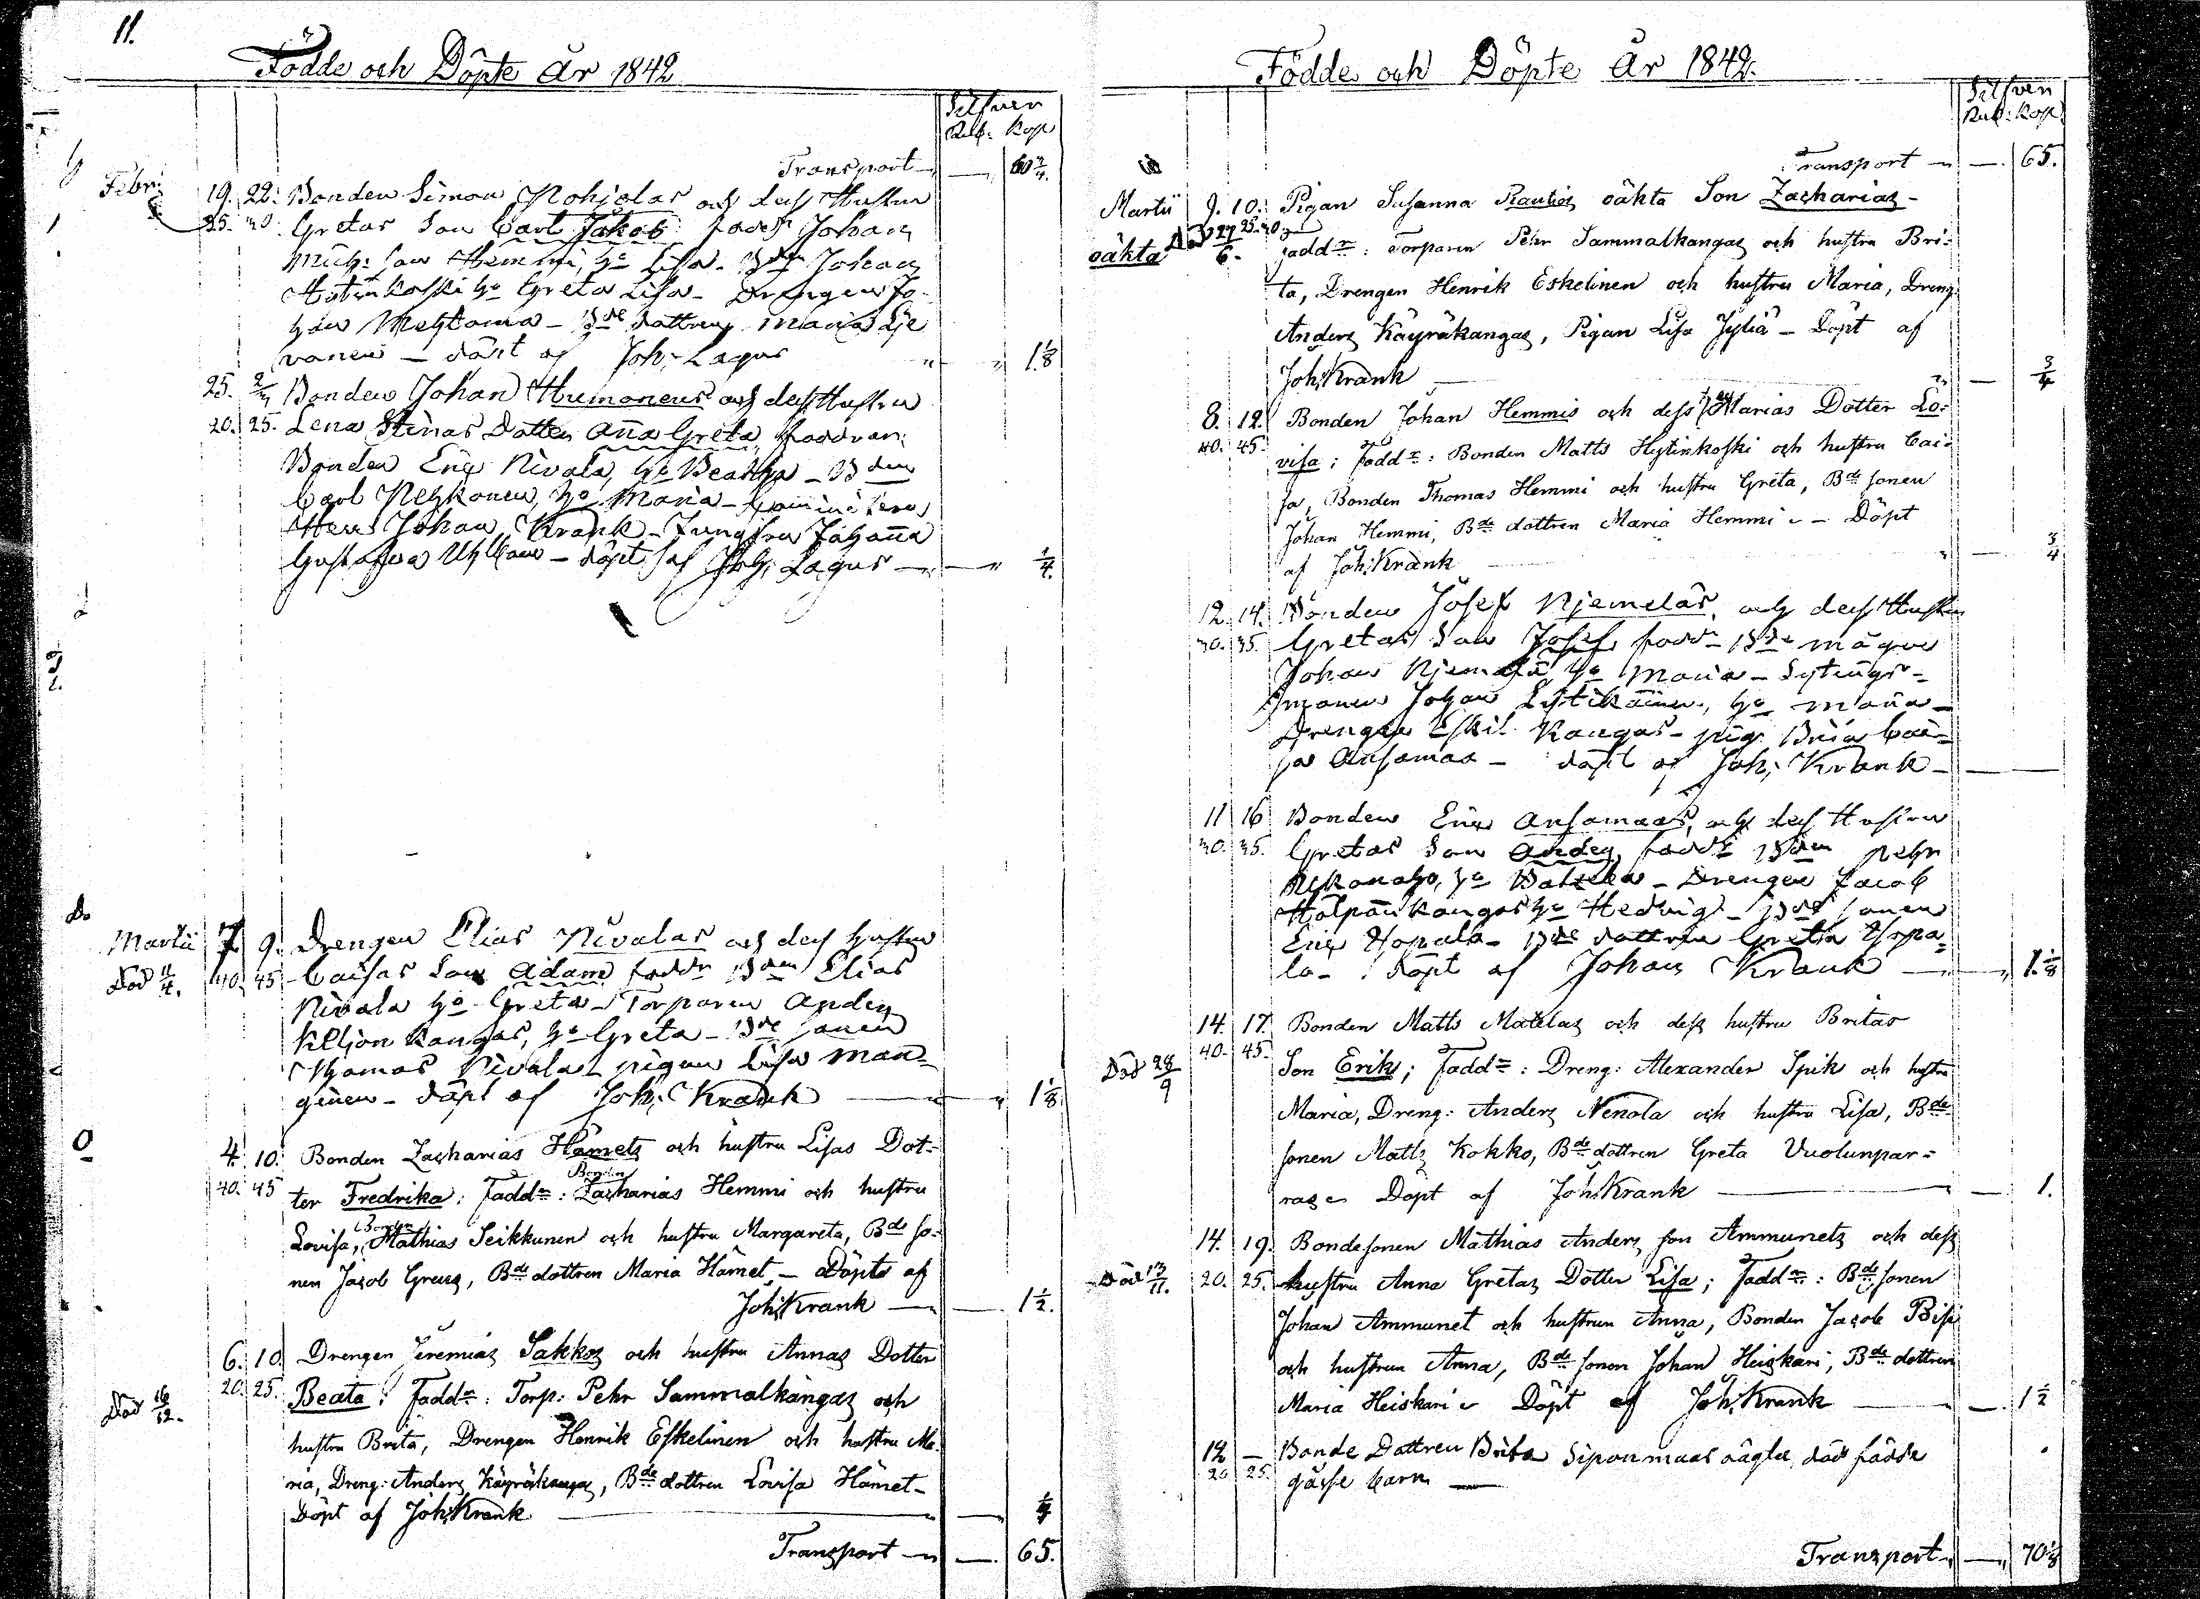 11.
Födde och Döpte År 1842
Silfver
Rub: Kop
Transport — — 60 3/4.
Febr: 19. 22. Bonden Simon Pohjolas och dess Hustru
25. 30. Gretas Son Carl Jakob: fadd: Johan
Hemmi, ho Lisa. Johan
ho Greta Lisa - Drengen Jo-
han - Bde dottren Maria
- döpt af Joh: Lagus " " 1/8
25. 2/3 Bonden Johan Humoneus och dess Hustru
20. 25. Lena Stinas Dotter Aña Greta, faddran:
Bonden Eric Nivala, ho Beatha - Bden
Carl Pehkonen, ho Maria -
Herr Johan Krank - Jungfru Johanna
Gustafva - döpt af Joh: Lagus — — " 1/4.
Martii 7 9. Drengen Elias Nivalas och dess hustru
Död 11/4. 40. 45 Caisas Son Adam, faddr Bden Elias
Nivala ho Greta - Torparen Anders
Kiljon Kangas, ho Greta - Bde sonen
Thomas Nivala - pigan Lisa Man-
ginen - döpt af Joh: Krank — " 1 1/8
4. 10. Bonden Zacharias Hämets och hustru Lisas Dot-
Bonden
40. 45 ter Fredrika; Fadd:r: Zacharias Hemmi och hustru
Bonden
Lovisa, Mathias Seikkunen och hustru Margareta, Bde so-
nen Jacob Greus, Bde dottren Maria Hämet, — Döpte af
Joh: Krank — — 1 1/2.
6. 10. Drengen Jeremias Sakkos och hustru Annas Dotter
Död 16/12. 20. 25. Beata; Fadd:r: Torp: Pehr Sammalkangas och
hustru Brita, Drengen Henrik Eskelinen och hustru Ma-
ria, Dreng: Anders Käyräkangas, Bde dottren Lovisa Hämet -
Döpt af Joh: Krank —
Transport — — 65.
Födde och Döpte År 1842.
Silfver
Rub: Kop.
Transport — — 65.
Martii 9. 10. Pigan Susanna Rautios oäkta Son Zacharias -
oäkta Död 27/6. 25. 30 Fadd:r: Torparen Pehr Sammalkangas och hustru Bri-
ta, Drengen Henrik Eskelinen och hustru Maria, Dreng:
Anders Käyräkangas, Pigan Lisa Jyliä - Döpt af
Joh: Krank — 3/4
8. 12. Bonden Johan Hemmis och dess hu Marias Dotter Lo-
40. 45. visa; Fadd:r: Bonden Matts Hytinkoski och hustru Cai-
sa, Bonden Thomas Hemmi och hustru Greta, Bde sonen
Johan Hemmi, Bde dottren Maria Hemmi - Döpt
af Joh: Krank " — 3/4
12. 14. Bonden Josef Njemeläs, och dess Hustru
30. 35. Gretas Son Josef, fadd - Bde mågen
Johan Njemelä, ho Maria - Sytnings-
manen Johan Lytikäinen, ho Maria -
Drengen Eskil Kangas - pig: Brita Cai-
sa Ansamaa - döpt af Joh: Krank —
11 16 Bonden Eric Ansamaas, och dess Hustru
30. 35. Gretas Son Anders, fadd:r Bden Pehr
ho - Drengen Jacob
ho Hedvig - Bde sonen
Eric Yspala - Bde dottren Greta Yspa-
la - döpt af Johan Krank — " 1 1/8
14. 17. Bonden Matts Mattelas och dess hustru Britas
Död 28/9 40. 45. Son Erik; Fadd:r: Dreng: Alexander Spik och hustru
Maria, Dreng: Anders Nenola och hustru Lisa, Bde
sonen Matts Kokko, Bde dottren Greta Vuolunpar-
ras - Döpt af Joh: Krank — — 1.
14. 19. Bondesonen Mathias Anders son Ammunets och dess
Död 13/11. 20. 25. hustru Anna Gretas Dotter Lisa; Fadd:r: Bde sonen
Johan Ammunet och hustrun Anna, Bonden Jacob Bisi
och hustrun Anna, Bde sonen Johan Heiskari, Bde dottren
Maria Heiskari - Döpt af Joh: Krank — — 1 1/2
12 — Bonde Dottren Brita Siponmaas oägta död födde
20 25 gåsse barn —
Transport — — 70 1/8